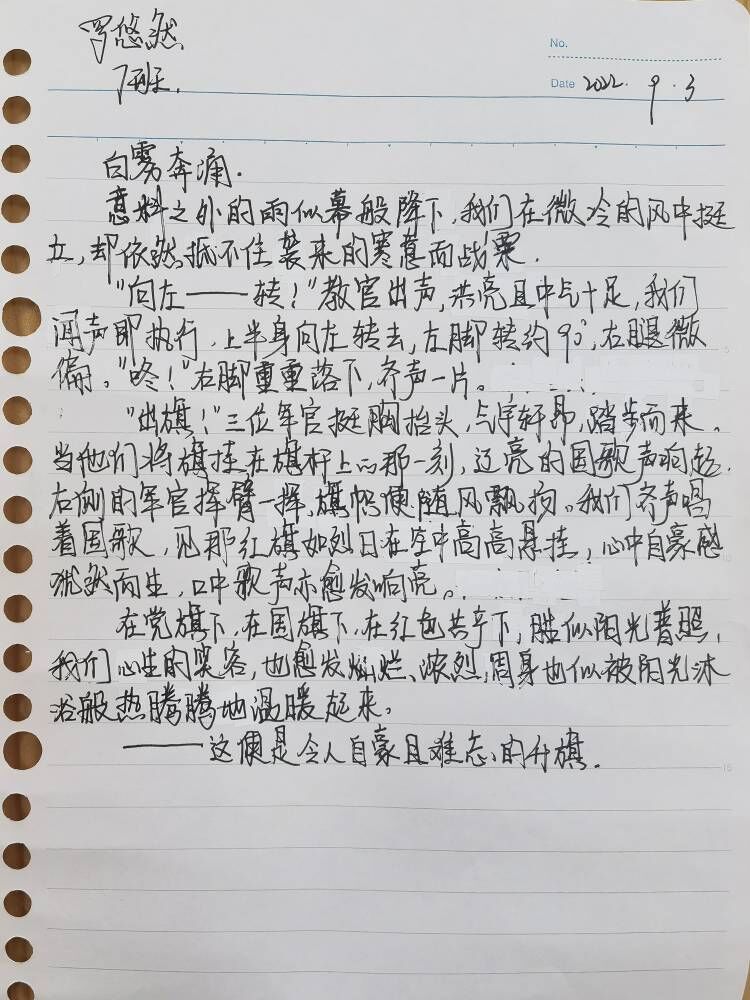 罗悠然
7班.
No.
Date 2022. 9. 3
白雾奔涌.
意料之外的雨似幕般降下,我们在微冷的风中挺
立,却依然抵不住袭来的寒意而战栗.
"向左——转!"教官出声,洪亮且中气十足,我们
闻声即执行,上半身向左转去,左脚转约90°,右腿微
偏。"咚!"右脚重重落下,齐声一片。
"出旗!"三位军官挺胸抬头,气宇轩昂,踏步而来。
当他们将旗挂在旗杆上的那一刻,辽亮的国歌声响起.
右侧的军官挥臂一挥,旗帜便随风飘扬。我们齐声唱
着国歌,见那红旗如烈日在空中高高悬挂,心中自豪感
犹然而生,口中歌声亦愈发响亮。
在党旗下,在国旗下,在红色共产下,胜似阳光普照,
我们心生的笑容,也愈发灿烂、浓烈,周身也似被阳光沐
浴般热腾腾地温暖起来。
——这便是令人自豪且难忘的升旗.
15